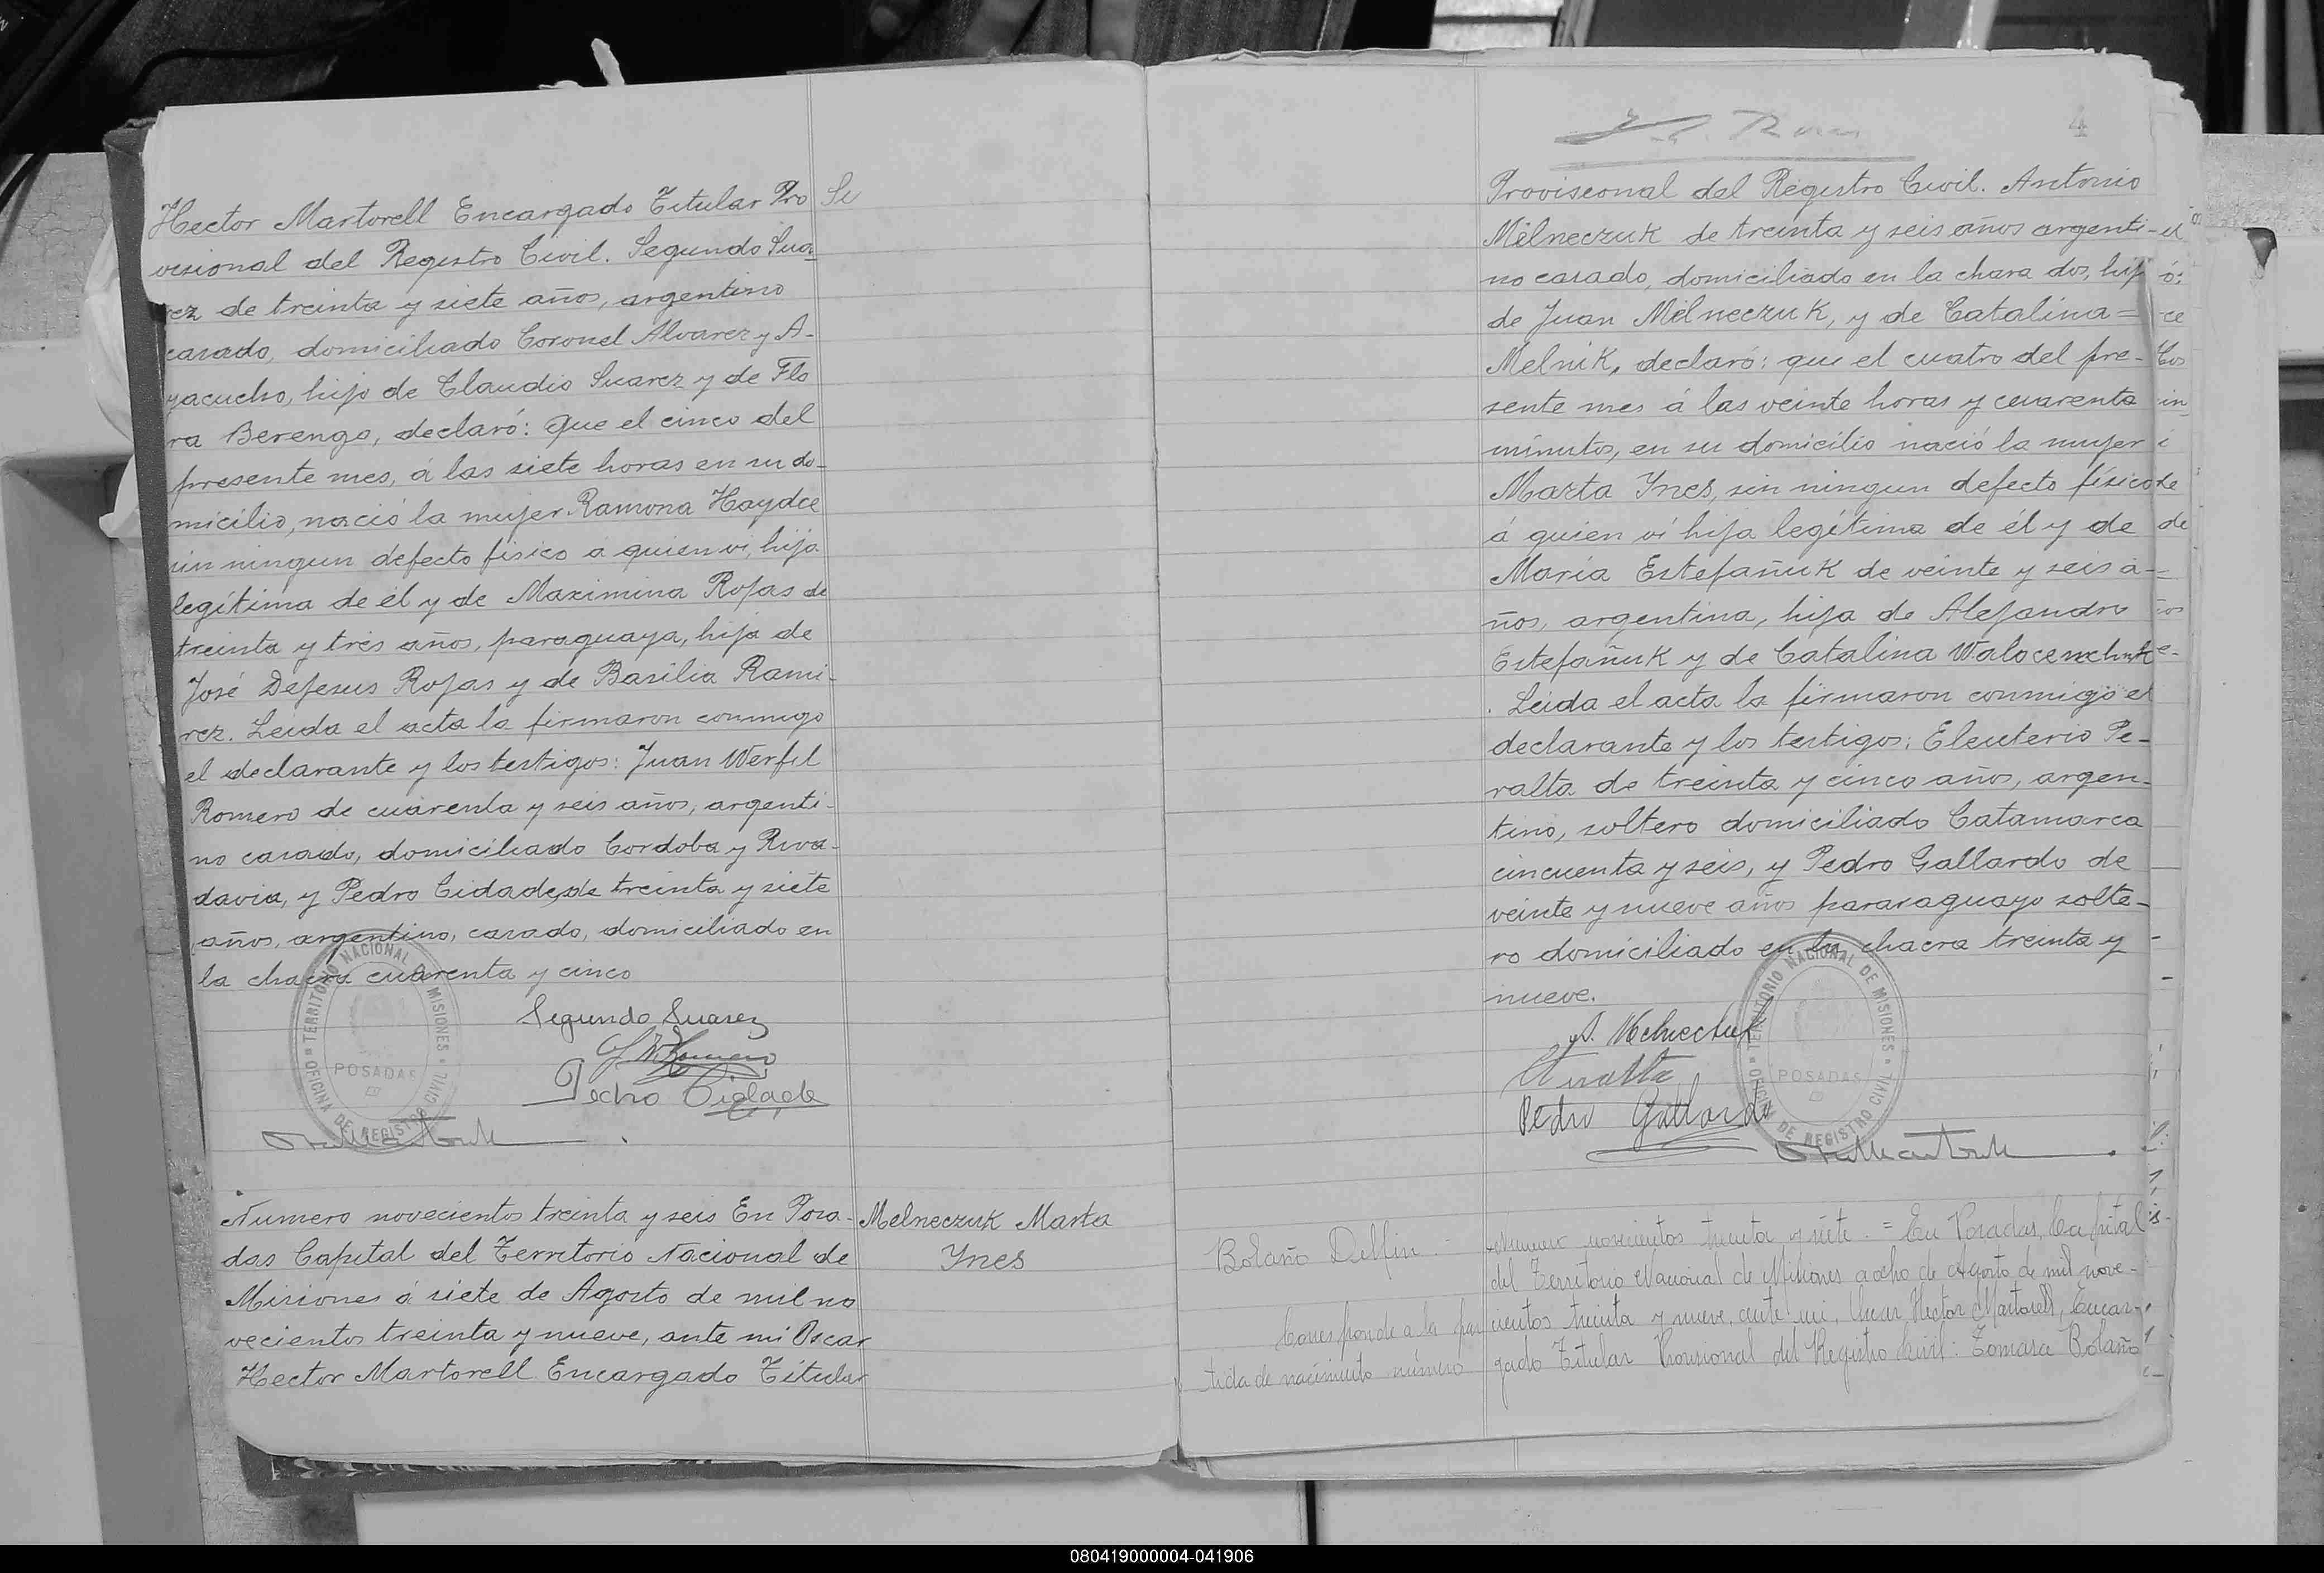 Hector Martorell Encargado Titular Pro
visional del Registro Civil. Segundo Sua
rez de treinta y siete años, argentino
casado, domiciliado Coronel Alvarez y A-
yacucho, hijo de Claudio Suarez y de Flo
ra Berengo, declaró: Que el cinco del
presente mes, á las siete horas en su do-
micilio, nació la mujer Ramona Haydee
sin ningun defecto fisico a quien vi, hija
legítima de él y de Maximina Rojas de
treinta y tres años, paraguaya, hija de
José Dejesus Rojas y de Basilia Rami-
rez. Leida el acta la firmaron conmigo
el declarante y los testigos: Juan Werfil
Romero de cuarenta y seis años, argenti-
no casado, domiciliado Cordoba y Riva-
davia, y Pedro Cidade, de treinta y siete
años, argentino, casado, domiciliado en
la chacra cuarenta y cinco
Segundo Suarez
Pedro Cidade
TERRITORIO NACIONAL DE MISIONES
POSADAS
OFICINA DE REGISTRO CIVIL
Numero novecientos treinta y seis En Posa-
das Capital del Territorio Nacional de
Misiones á siete de Agosto de mil no
vecientos treinta y nueve, ante mi Oscar
Hector Martorell Encargado Titular
Melneczuk Marta
Ynes
4
Provisional del Registro Civil. Antonio
Melneczuk de treinta y seis años argenti-
no casado, domiciliado en la chara dos, hijo
de Juan Melneczuk, y de Catalina =
Melnik, declaró: que el cuatro del pre-
sente mes á las veinte horas y cuarenta
minutos, en su domicilio nació la mujer
Marta Ynes, sin ningun defecto físico
á quien ví hija legítima de él y de
María Estefañuk de veinte y seis a-
ños, argentina, hija de Alejandro
Estefañuk y de Catalina Walocenchuk
. Leida el acta la firmaron conmigo el
declarante y los testigos: Eleuterio Pe-
ralta de treinta y cinco años, argen-
tino, soltero domiciliado Catamarca
cincuenta y seis, y Pedro Gallardo de
veinte y nueve años pararaguayo solte-
ro domiciliado en la chacra treinta y
nueve.
A. Melneczuk
Pedro Gallardo
TERRITORIO NACIONAL DE MISIONES
POSADAS
OFICINA DE REGISTRO CIVIL
Bolaño Delfin.-
Corresponde a la par
tida de nacimiento número
Numero novecientos treinta y siete. = En Posadas, Capital
del Territorio Nacional de Misiones a ocho de Agosto de mil nove-
cientos treinta y nueve, ante mi, Oscar Hector Martorell, Encar-
gado Titular Provisional del Registro Civil: Tomasa Bolaño
080419000004-041906